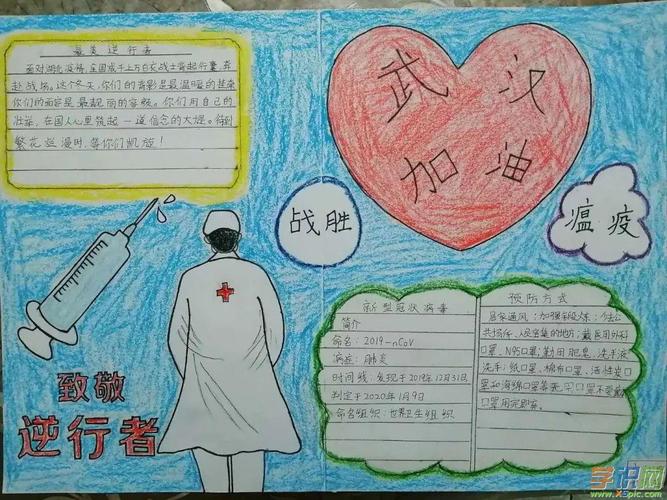 最美逆行者
面对湖北疫情，全国成千上万白衣战士背起行囊，奔
赴战场。这个冬天，你们的背影是最温暖的挂来
你们的面容是最靓丽的容貌。你们用自己的
壮举，在国人心里筑起一道信念的大堤。待到
繁花烂漫时，等你们凯旋！
武汉
加油
战胜
瘟疫
致敬
逆行者
新型冠状病毒
简介
命名：2019-nCoV
病症：肺炎
时间线：发现于2019年12月31日
判定于2020年1月9日
命名组织：世界卫生组织
预防方式
居家通风；加强锻炼；少去公
共场所、人员密集的地方；戴医用外科
口罩、N95口罩；勤用肥皂、洗手液
洗手；纸口罩、棉布口罩、活性炭口
罩和海绵口罩等
口罩用完即弃。
学识网
www.xspic.com